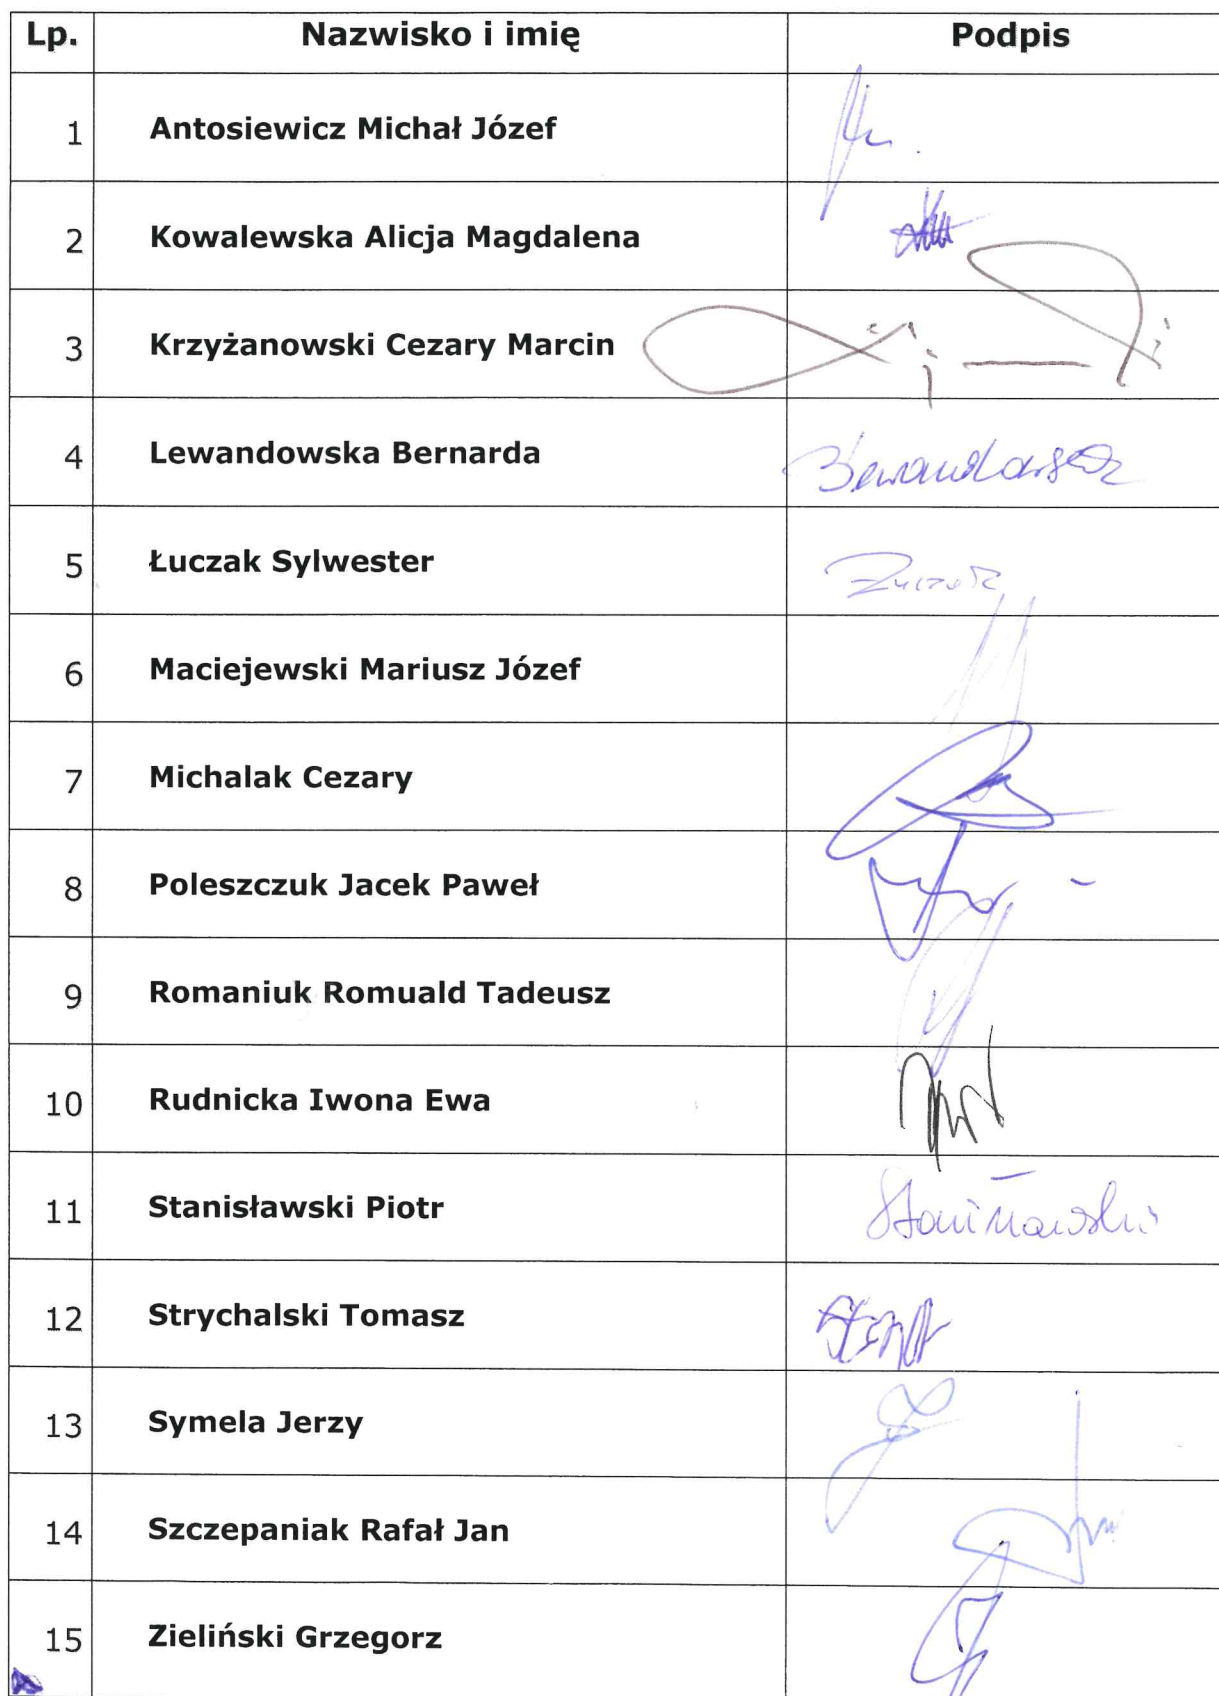 Lp. Nazwisko i imię Podpis
1 Antosiewicz Michał Józef
2 Kowalewska Alicja Magdalena
3 Krzyżanowski Cezary Marcin
4 Lewandowska Bernarda
5 Łuczak Sylwester
6 Maciejewski Mariusz Józef
7 Michalak Cezary
8 Poleszczuk Jacek Paweł
9 Romaniuk Romuald Tadeusz
10 Rudnicka Iwona Ewa
11 Stanisławski Piotr
12 Strychalski Tomasz
13 Symela Jerzy
14 Szczepaniak Rafał Jan
15 Zieliński Grzegorz